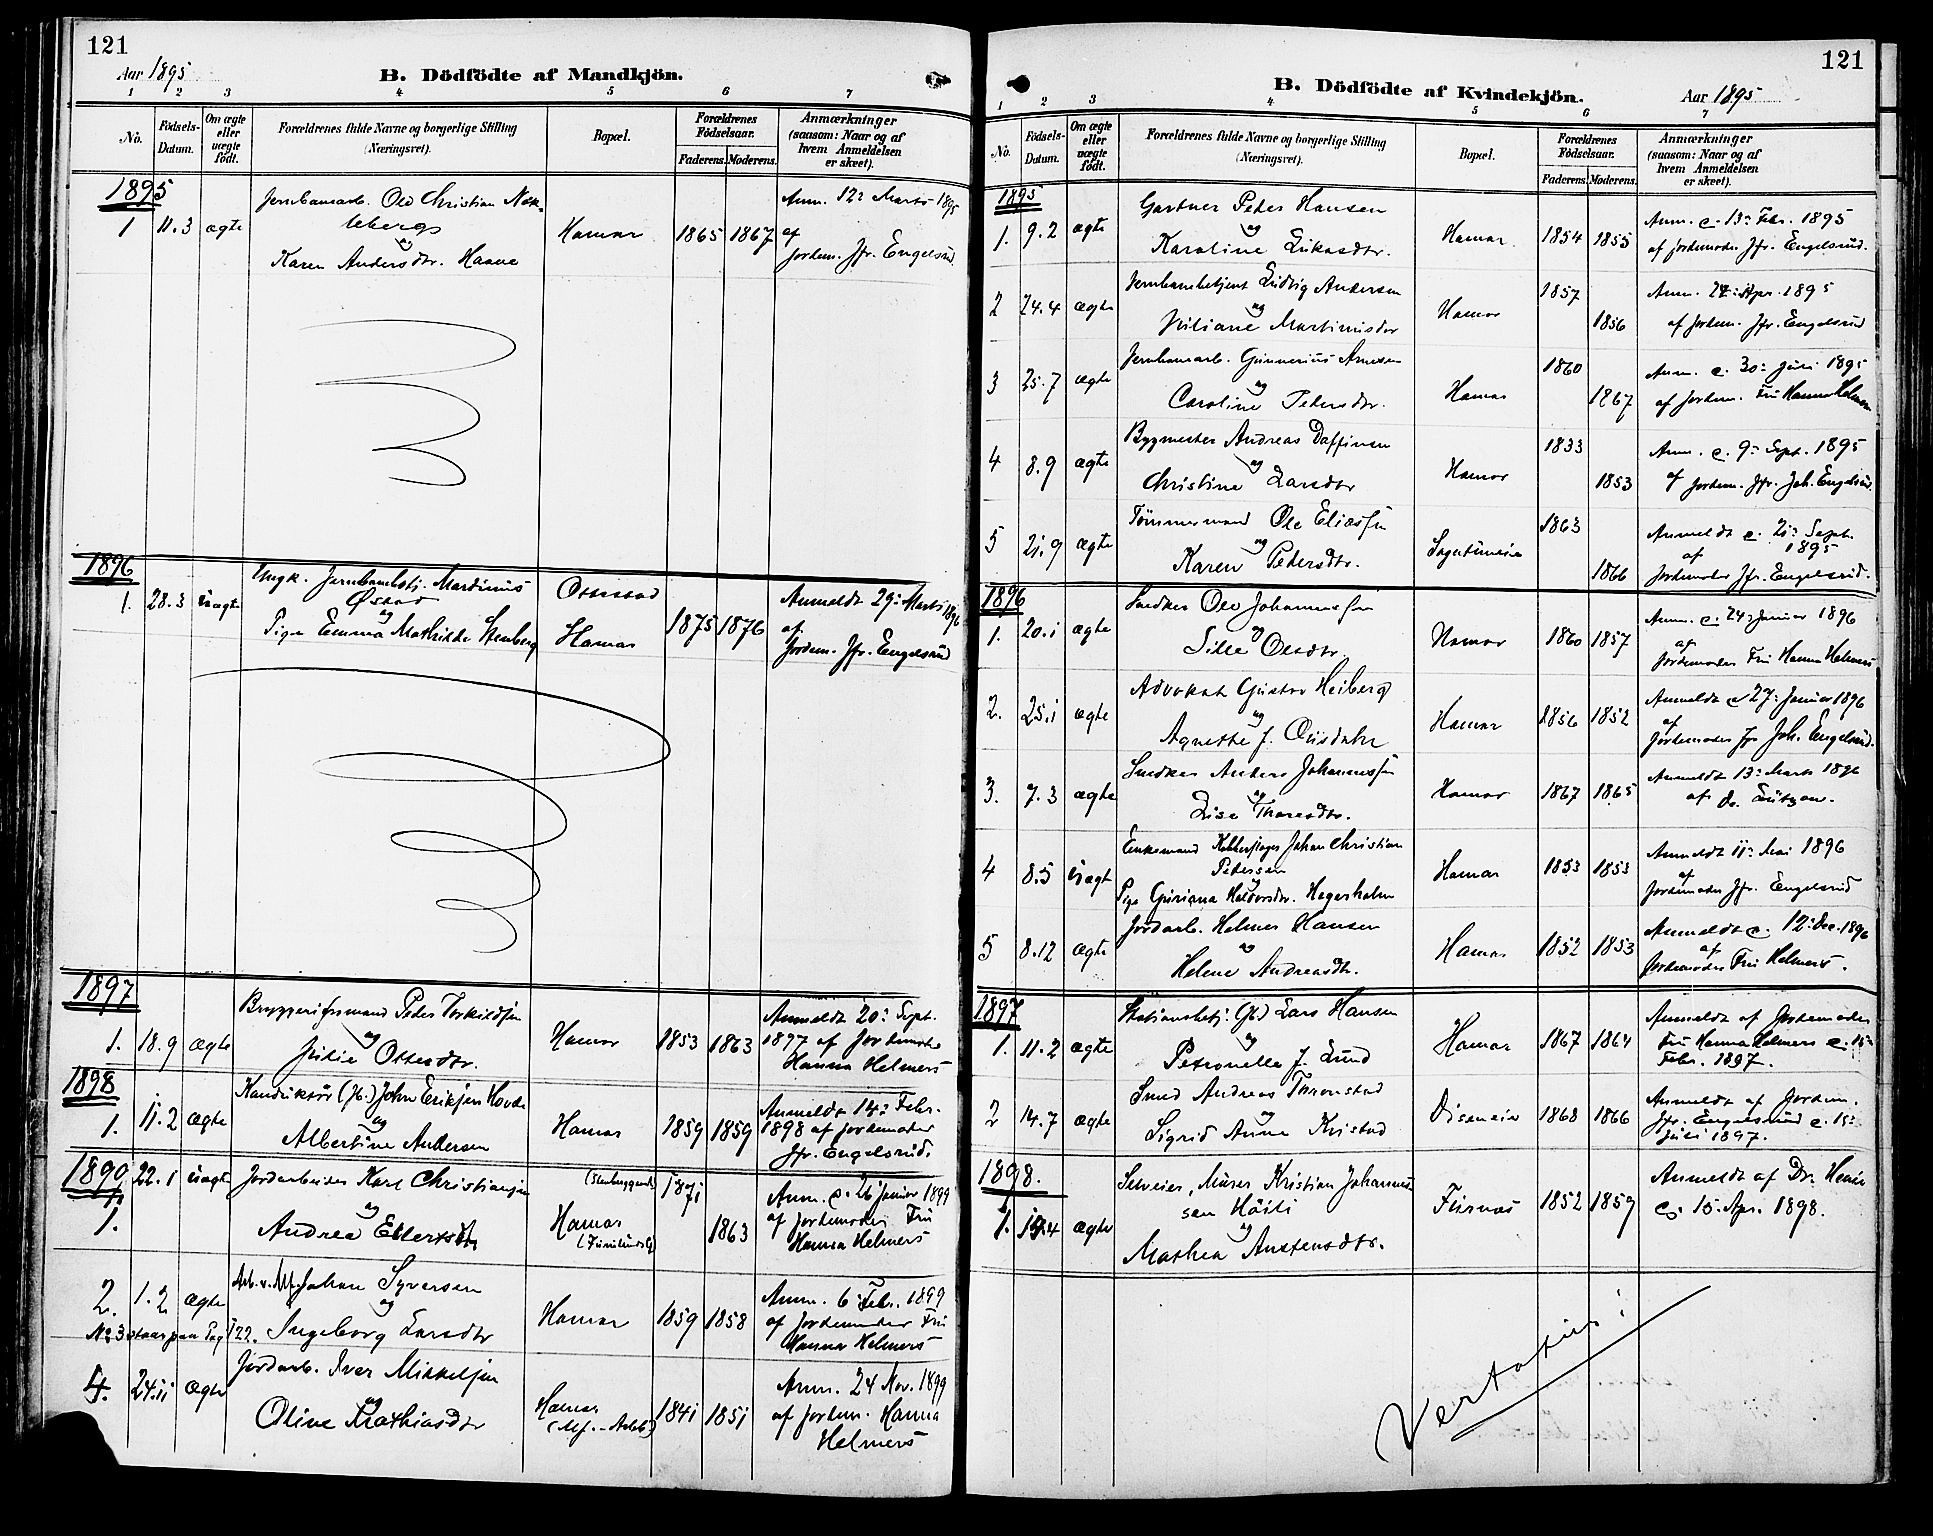 121
Aar 1895
B. Dödfödte af Mandkjön.
1 2 3 4 5 6 7
No. Födsels-Datum. Om ægte eller uægte födt. Forældrenes fulde Navne og borgerlige Stilling (Næringsvei). Bopæl. Forældrenes Födselsaar. Faderens. Moderens. Anmærkninger (saasom: Naar og af hvem Anmeldelsen er skeet).
1895
1 11.3 ægte Jernbanearb. Ole Christian
og
Karen Andersdtr. Haave
Hamar 1865 1867
Anm. 12: Marts 1895
af
Jordem. Jfr. Engelsrud.
1896
1. 28.3 uægte Ungk. Jernbanebetj. Martinius
Østad
og
Pige Emma Mathilde Stenberg
Ottestad
Hamar
1875 1876
Anmeldt 29: Marts 1896
af
Jordem. Jfr. Engelsrud
1897
1. 18.9 ægte Bryggeriformand Peder Torkildsen
og
Julie Ottersdtr.
Hamar 1853 1863
Anmeldt 20: Sept.
1897 af Jordmoder
Hanna Helmers
1898
1. 11.2 ægte Konduktør (Jb.) John Eriksen Hovde
og
Albertine Andersen
Hamar 1859 1859
Anmeldt 14: Febr.
1898 af Jordemoder
Jfr. Engelsrud.
1899
1. 22.1 uægte Jordarbeider Karl Christiansen
og
Andrea Ellertsdtr
(Stenbyggend)
Hamar
1871
1863
Anm. c. 26 Januar 1899
af Jordemoder Fru
Hanna Helmers
2. 1.2 ægte Arb. v. Mf. Johan Syversen
og
Ingeborg Larsdtr
Hamar 1859 1858
Anm. 6 Febr. 1899
af Jordemoder Fru
Hanna Helmers
No 3 staar paa Pag 122.
4. 24.11 ægte Jordarb. Iver Mikkelsen
og
Oline Mathiasdtr
Hamar
(Mf. - Arbb)
1841 1851
Anm. 24 Nov. 1899
af Jordem. Hanna
Helmers
121
B. Dödfödte af Kvindekjön.
Aar 1895
1 2 3 4 5 6 7
No. Födsels-Datum. Om ægte eller uægte födt. Forældrenes fulde Navne og borgerlige Stilling (Næringsvei). Bopæl. Forældrenes Födselsaar. Faderens. Moderens. Anmærkninger (saasom: Naar og af hvem Anmeldelsen er skeet).
1895
1. 9.2 ægte Gartner Peter Hansen
og
Karoline Lukasdtr.
Hamar. 1854 1855
Anm. c. 13: Febr. 1895
af Jordemoder Jfr. Engelsrud.
2 24.4 ægte Jernbanebetjent Ludvig Andersen
og
Juliane Martinusdtr
Hamar 1857
1856
Anm. 27: Apr. 1895
af Jordem. Jfr. Engelsrud
3 25.7 ægte Jernbanearb. Gunnerius Arnesen
og
Caroline Petersdtr.
Hamar 1860
1867
Anm. c. 30: Juli 1895
af Jordem. Fru Hanna Helmers
4 8.9 ægte Bygmester Andreas Daffinsen
og
Christine Larsdtr
Hamar 1833
1853
Anm. c. 9: Sept. 1895
af Jordem. Jfr. Joh. Engelsrud.
5 21.9 ægte Tømmermand Ole Eliassen
og
Karen Pedersdtr.
1863
1866
Anmeldt c. 21: Sept.
1895
af
Jordemoder Jfr. Engelsrud.
1896
1. 20.1 ægte Snedker Ole Johannessen
og
Sille Olsdtr.
Hamar 1860 1857
Anm. c. 24: Januar 1896
af
Jordemoder Fru Hanna Helmers
2. 25.1 ægte Advokat Gustav Heiberg
og
Agnethe f.
Hamar 1856 1852
Anmeldt c. 27: Januar 1896
af
Jordemoder Jfr Joh. Engelsrud.
3. 7.3 ægte Snedker Anders Johannessen
og
Lise Thoresdtr.
Hamar 1867 1865
Anmeldt 13: Marts 1896
af Dr. Lützow.
4 8.5 uægte Enkemand Kobberslager Johan Christian
Petersen
og
Pige Guriana Halvorsdtr. Hegersholm
Hamar 1853 1853
Anmeldt 11: Mai 1896
af
Jordemoder Jfr. Engelsrud
5 8.12 ægte Jordarb. Helmer Hansen
og
Helene Andreasdtr.
Hamar 1852 1853
Anmeldt c. 12: Dec. 1896
af
Jordemoder Fru Helmers.
1897
1. 11.2 ægte Stationsbetj. (Jb.) Lars Hansen
og
Petronelle f. Lund
Hamar 1867 1864
Anmeldt af Jordemoder
Fru Hanna Helmers c. 15:
Febr. 1897.
2 14.7 ægte Smed Andreas Thronstad
og
Sigrid Anna Kristad
Diseneie 1868 1866
Anmeldt af Jordem.
Jfr. Engelsrud c. 15:
Juli 1897.
1898.
1. ægte Selveier, Murer Kristian Johannes-
sen Höili
og
Mathea Austensdtr.
Furnæs 1852 1859
Anmeldt af Dr.
c. 15. Apr. 1898.
Vertatur!